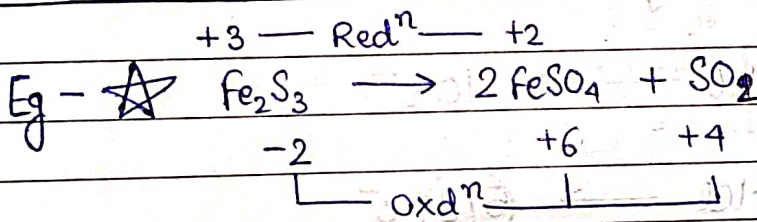 +3 — Redⁿ — +2
Eg - ☆ Fe₂S₃ ⟶ 2 FeSO₄ + SO₂
-2 +6 +4
Oxdⁿ